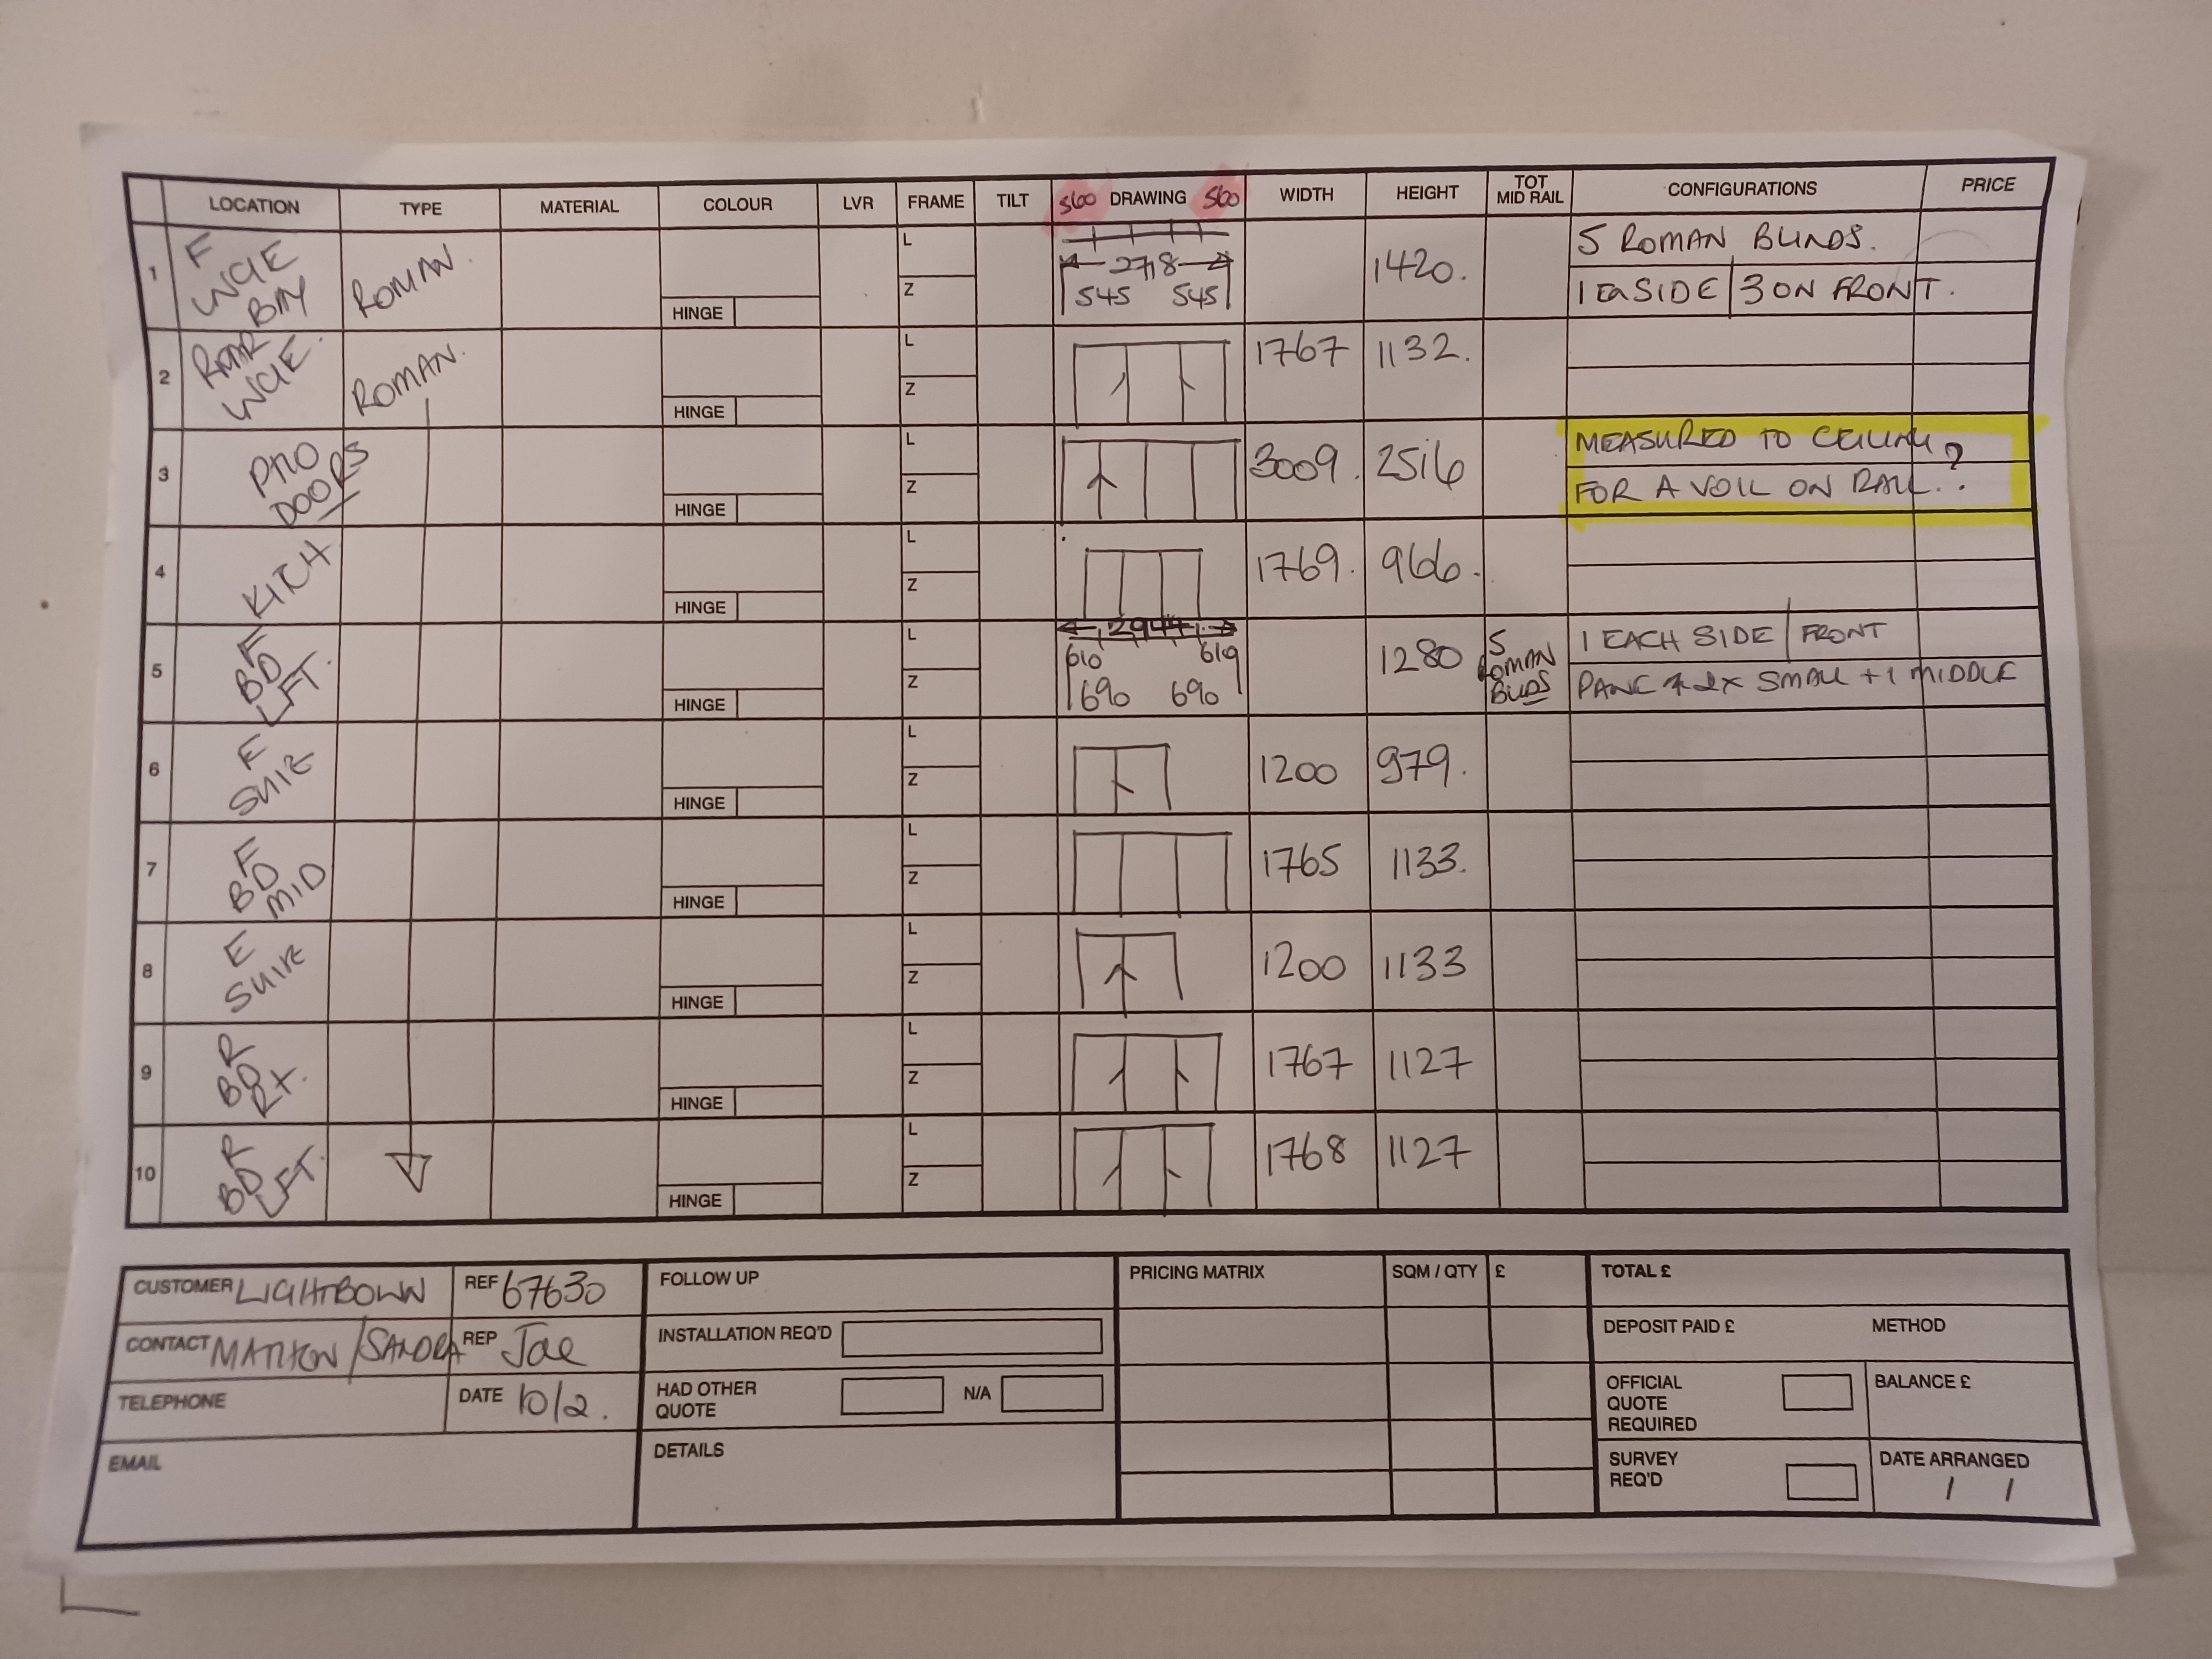 LOCATION TYPE MATERIAL COLOUR LVR FRAME TILT 560 DRAWING 560 WIDTH HEIGHT TOT MID RAIL CONFIGURATIONS PRICE
1 F LNGE BAY ROMAN. HINGE L Z 2718 545 545 1420. 5 ROMAN BLINDS.
1 EA SIDE 3 ON FRONT.
2 REAR LNGE. ROMAN. HINGE L Z 1767 1132.
3 DOORS HINGE L Z 3009. 2516 MEASURED TO CEILING
FOR A VOIL ON RAIL..?
4 KITCH HINGE L Z 1769. 966.
5 F BD LFT. HINGE L Z 610 619 690 690 1280 5 ROMAN BLDS 1 EACH SIDE FRONT
PANE 2x SMALL + 1 MIDDLE
6 E SUITE HINGE L Z 1200 979.
7 F BD MID HINGE L Z 1765 1133.
8 E SUITE HINGE L Z 1200 1133
9 R BD RT. HINGE L Z 1767 1127
10 R BD LFT. HINGE L Z 1768 1127
CUSTOMER LIGHTBOWN REF 67630 FOLLOW UP PRICING MATRIX SQM / QTY £ TOTAL £
CONTACT MATTHEW / SANDRA REP INSTALLATION REQ'D DEPOSIT PAID £ METHOD
TELEPHONE DATE 10/2. HAD OTHER QUOTE N/A OFFICIAL QUOTE REQUIRED BALANCE £
EMAIL DETAILS SURVEY REQ'D DATE ARRANGED / /